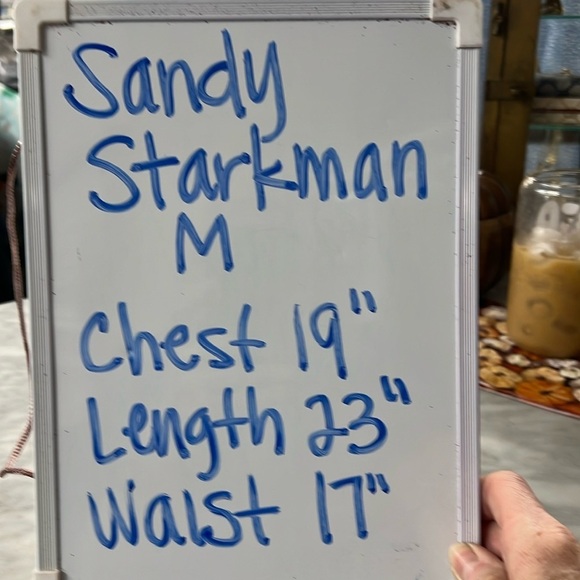 Sandy
Starkman
M
Chest 19"
Length 23"
Waist 17"